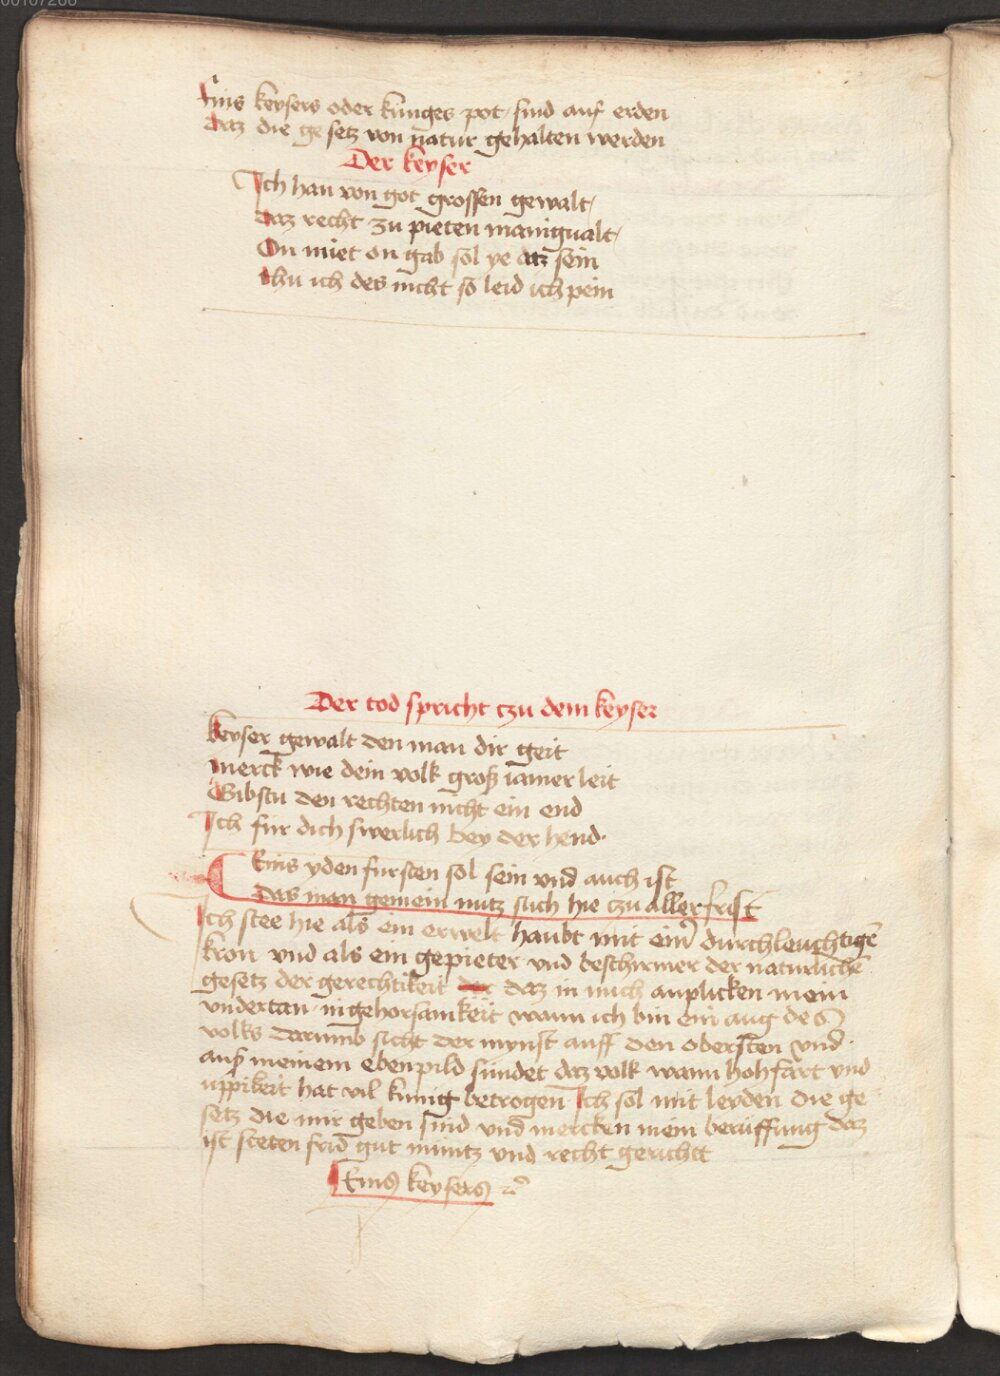 Eins keysers oder kunges pot sind auf erden
Daz die ge setz von natur gehalten werden
Der keyser
Ich han von got grossen gewalt/
Daz recht zu pieten manigualt/
On miet on gab sol ye daz sein
thu ich des nicht so leid ich pein
Der tod spricht czu dem keyser
keyser gewalt den man dir geit
merck wie dein volk groß iamer leit
Gibstu den rechten nicht ein end
Ich fur dich swerlich bey der hend.
Eins yden fursten sol sein vnd auch ist
Das man gemein nutz such hie czu aller frist
Ich stee hie als ein erwelt haubt mit eim durchleuchtigē
kron vnd als ein gepieter vnd beschirmer der naturlichē
gesetz der gerechtikeit daz in mich anplicken mein
vndertan in gehorsamkeit wann ich bin ein aug des
volks Darumb sicht der mynst auff den obersten vnd
auß meinem ebenpild sundet daz volk wann hohfart vnd
uppikeit hat vil kunig betrogen Ich sol mit leyden die ge
setz die mir geben sind vnd mercken mein beruffung daz
ist steten frid gut muntz vnd recht gericht
Eins keysers ꝛc